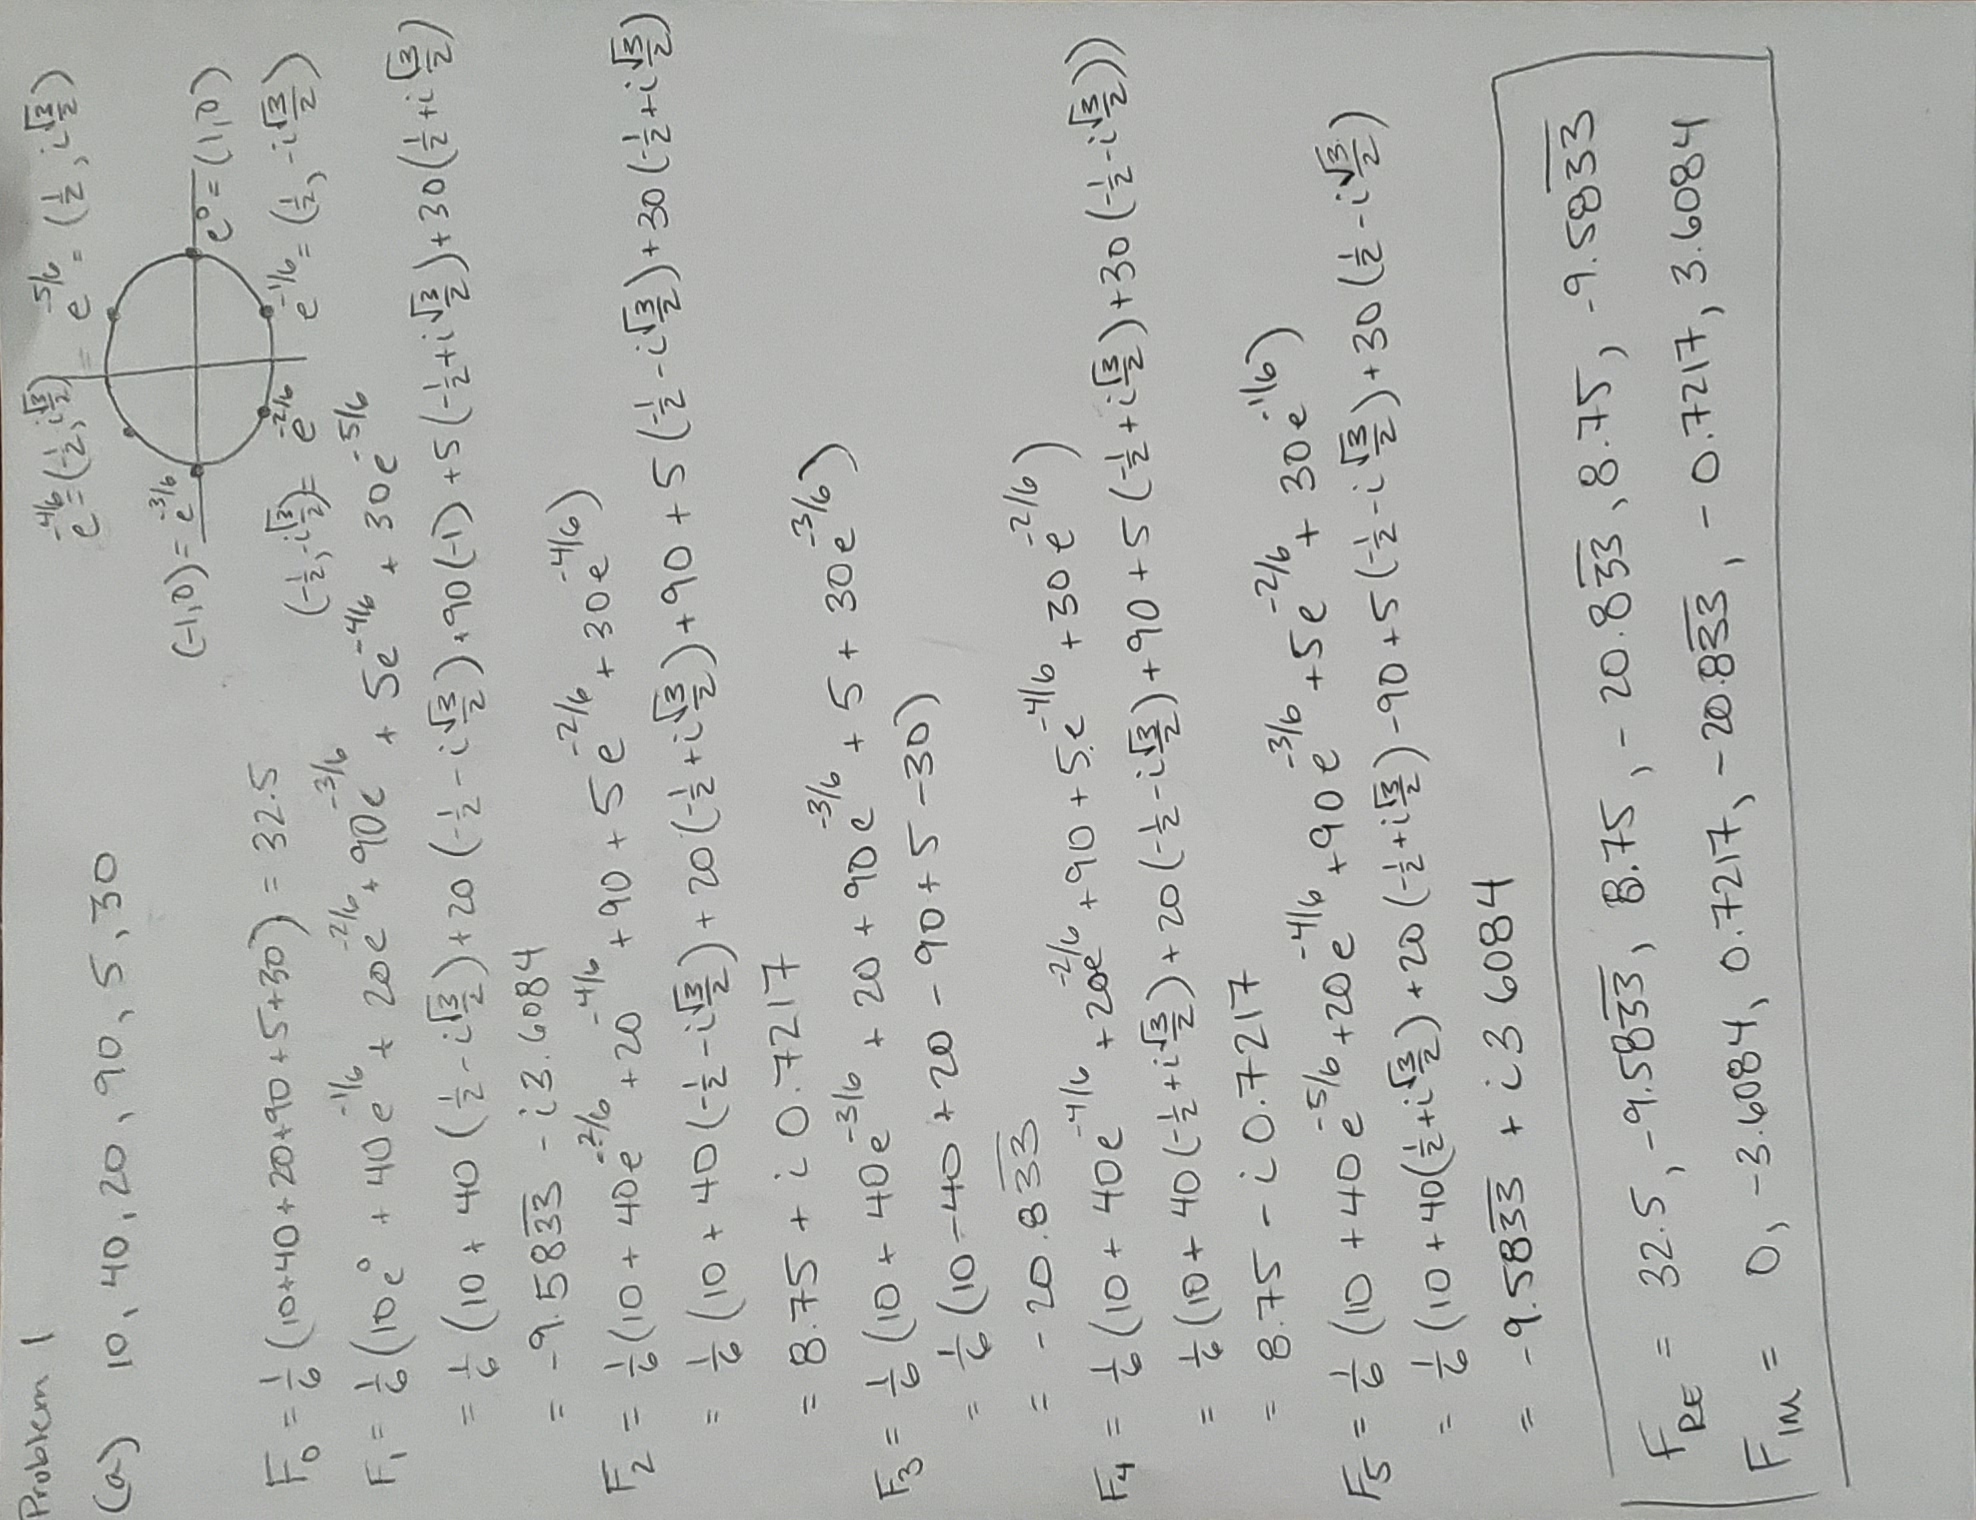 Problem 1
(a) 10, 40, 20, 90, 5, 30
e^{-4/6} = (-1/2, i√3/2)
e^{-5/6} = (1/2, i√3/2)
(-1,0) = e^{-3/6}
e^0 = (1,0)
(-1/2, -i√3/2) = e^{-2/6}
e^{-1/6} = (1/2, -i√3/2)
F_0 = 1/6 (10+40+20+90+5+30) = 32.5
F_1 = 1/6 (10e^0 + 40e^{-1/6} + 20e^{-2/6} + 90e^{-3/6} + 5e^{-4/6} + 30e^{-5/6}
= 1/6 (10 + 40 (1/2 - i√3/2) + 20 (-1/2 - i√3/2) + 90(-1) + 5(-1/2 + i√3/2) + 30(1/2 + i√3/2)
= -9.583̅3̅ - i3.6084
F_2 = 1/6 (10 + 40e^{-2/6} + 20^{-4/6} + 90 + 5e^{-2/6} + 30e^{-4/6})
= 1/6 (10 + 40(-1/2 - i√3/2) + 20(-1/2 + i√3/2) + 90 + 5(-1/2 - i√3/2) + 30(-1/2 + i√3/2)
= 8.75 + i0.7217
F_3 = 1/6 (10 + 40e^{-3/6} + 20 + 90e^{-3/6} + 5 + 30e^{-3/6})
= 1/6 (10 - 40 + 20 - 90 + 5 - 30)
= -20.83̅3̅
F_4 = 1/6 (10 + 40e^{-4/6} + 20e^{-2/6} + 90 + 5e^{-4/6} + 30e^{-2/6})
= 1/6 (10 + 40(-1/2 + i√3/2) + 20(-1/2 - i√3/2) + 90 + 5(-1/2 + i√3/2) + 30(-1/2 - i√3/2))
= 8.75 - i0.7217
F_5 = 1/6 (10 + 40e^{-5/6} + 20e^{-4/6} + 90e^{-3/6} + 5e^{-2/6} + 30e^{-1/6})
= 1/6 (10 + 40(1/2 + i√3/2) + 20(-1/2 + i√3/2) - 90 + 5(-1/2 - i√3/2) + 30(1/2 - i√3/2)
= -9.583̅3̅ + i3 6084
F_RE = 32.5, -9.583̅3̅, 8.75, -20.83̅3̅, 8.75, -9.583̅3̅
F_IM = 0, -3.6084, 0.7217, -20.83̅3̅, -0.7217, 3.6084